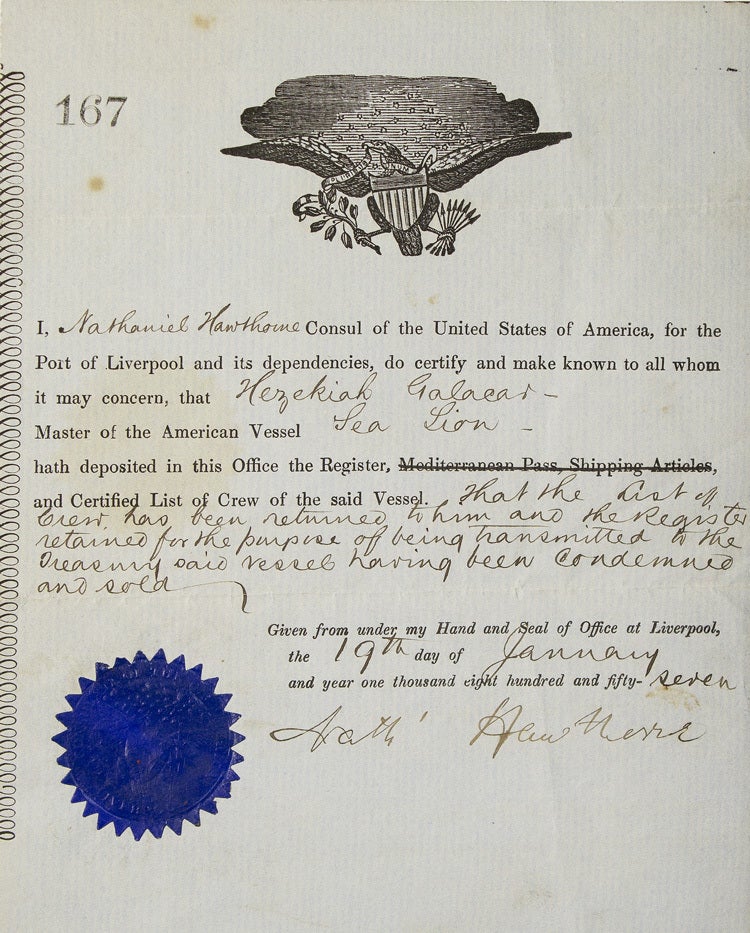 167
I, Nathaniel Hawthorne Consul of the United States of America, for the
Port of Liverpool and its dependencies, do certify and make known to all whom
it may concern, that Hezekiah Galacar -
Master of the American Vessel Sea Lion -
hath deposited in this Office the Register, Mediterranean Pass, Shipping Articles,
and Certified List of Crew of the said Vessel. That the List of
Crew has been returned to him and the Register
retained for the purpose of being transmitted to the
Treasury said vessel having been condemned
and sold
Given from under my Hand and Seal of Office at Liverpool,
the 19th day of January
and year one thousand eight hundred and fifty- seven
Nathl Hawthorne